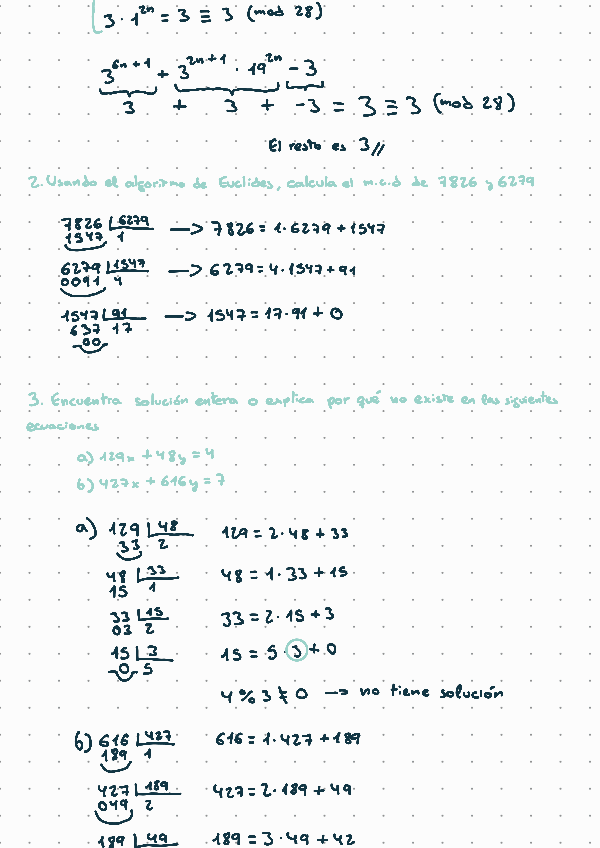 3·1^2n = 3 ≡ 3 (mod 28)
3^6n+1 + 3^2n+1 · 19^2n - 3
3 + 3 + -3 = 3 ≡ 3 (mod 28)
El resto es 3//
2. Usando el algoritmo de Euclides, calcula el m.c.d de 7826 y 6279
7826 | 6279 —> 7826 = 1·6279 + 1547
1547 1
6279 | 1547 —> 6279 = 4·1547 + 91
0091 4
1547 | 91 —> 1547 = 17·91 + 0
637 17
00
3. Encuentra solución entera o explica por qué no existe en las siguientes
ecuaciones
a) 129x + 48y = 4
b) 427x + 616y = 7
a) 129 | 48 129 = 2·48 + 33
33 2
48 | 33 48 = 1·33 + 15
15 1
33 | 15 33 = 2·15 + 3
03 2
15 | 3 15 = 5·3 + 0
0 5
4 % 3 ≠ 0 —> no tiene solución
b) 616 | 427 616 = 1·427 + 189
189 1
427 | 189 427 = 2·189 + 49
049 2
189 | 49 189 = 3·49 + 42